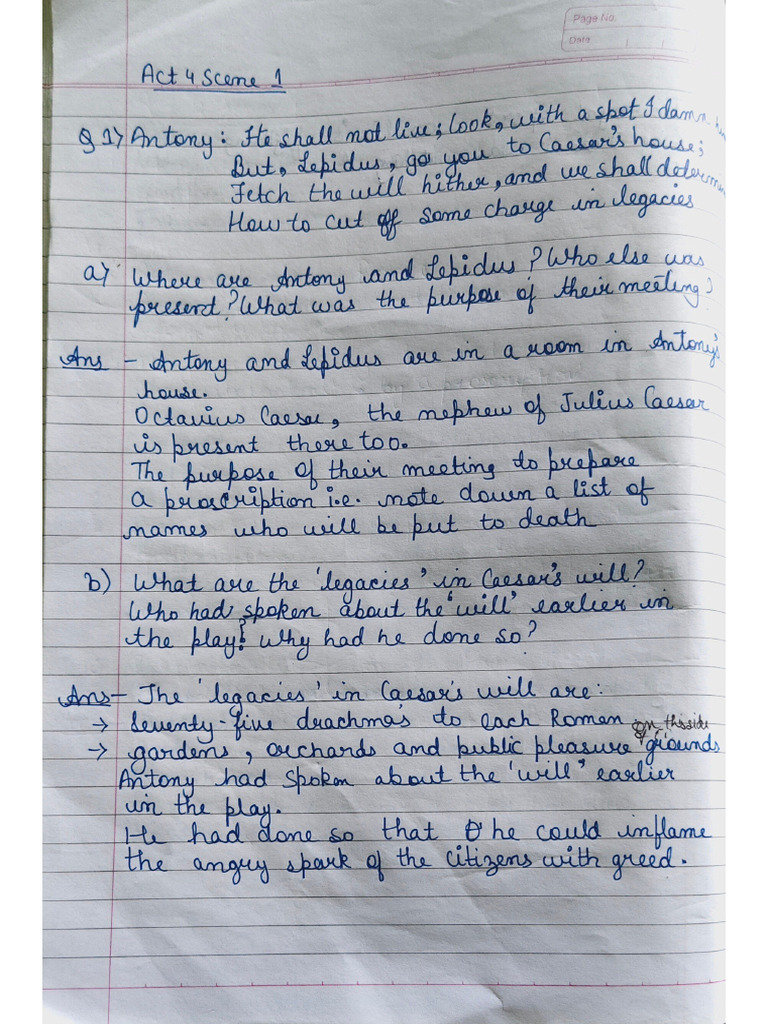 Page No.
Date
Act 4 Scene 1
Q 1) Antony: He shall not live; look, with a spot I damn him
But, Lepidus, go you to Caesar's house;
Fetch the will hither, and we shall determine
How to cut off some charge in legacies
a) Where are Antony and Lepidus? Who else was
present? What was the purpose of their meeting?
Ans - Antony and Lepidus are in a room in Antony's
house.
Octavius Caesar, the nephew of Julius Caesar
is present there too.
The purpose of their meeting to prepare
a proscription i.e. note down a list of
names who will be put to death
b) What are the 'legacies' in Caesar's will?
Who had spoken about the 'will' earlier in
the play? why had he done so?
Ans - The 'legacies' in Caesar's will are:
→ Seventy-five drachma's to each Roman
on this side
→ gardens, orchards and public pleasure grounds
Antony had spoken about the 'will' earlier
in the play.
He had done so that he could inflame
the angry spark of the citizens with greed.